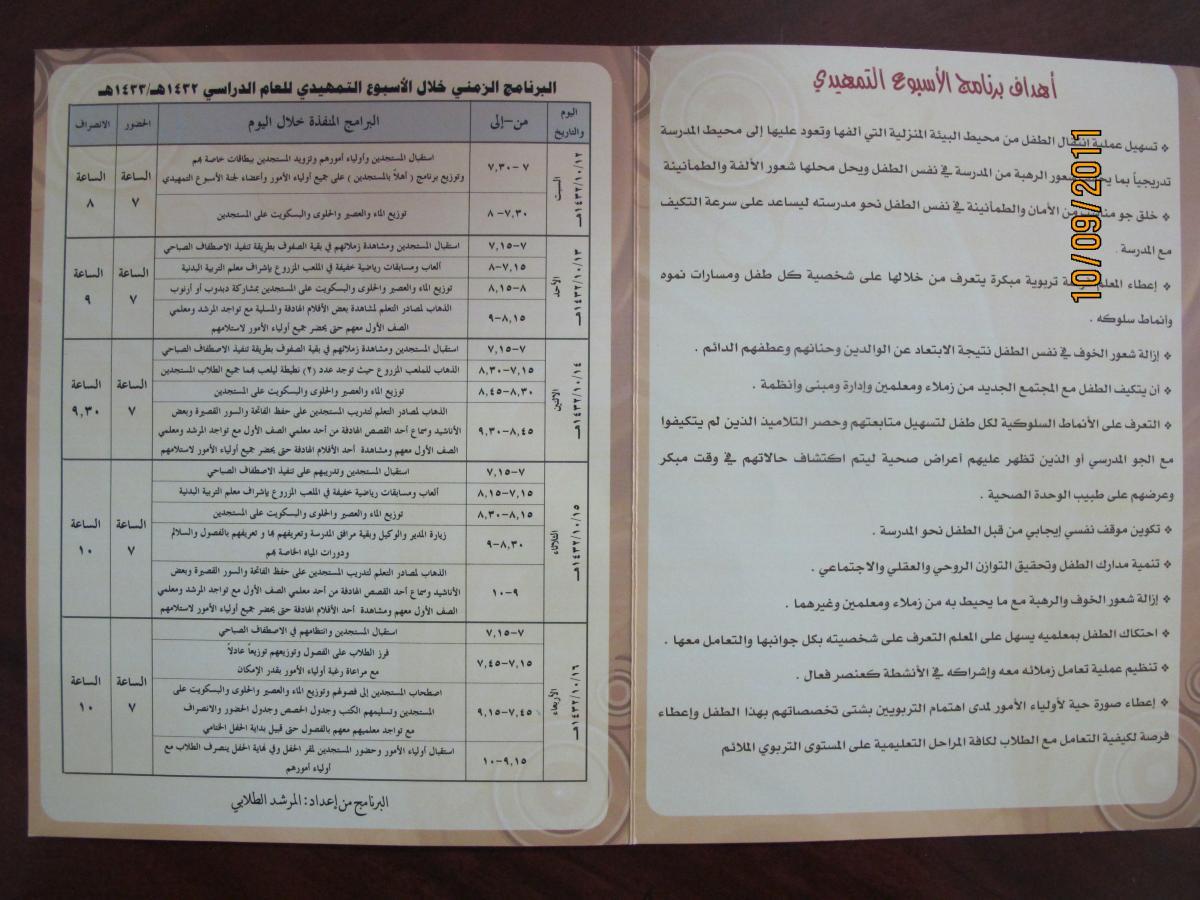 أهداف برنامج الأسبوع التمهيدي
❖ تسهيل عملية إنتقال الطفل من محيط البيئة المنزلية التي ألفها وتعود عليها إلى محيط المدرسة
تدريجياً بما شعور الرهبة من المدرسة في نفس الطفل ويحل محلها شعور الألفة والطمأنينة
❖ خلق جو مناسب من الأمان والطمأنينة في نفس الطفل نحو مدرسته ليساعد على سرعة التكيف
مع المدرسة .
❖ إعطاء المعلم فرصة تربوية مبكرة يتعرف من خلالها على شخصية كل طفل ومسارات نموه
وأنماط سلوكه .
❖ إزالة شعور الخوف في نفس الطفل نتيجة الابتعاد عن الوالدين وحنانهم وعطفهم الدائم .
❖ أن يتكيف الطفل مع المجتمع الجديد من زملاء ومعلمين وإدارة ومبنى وأنظمة .
❖ التعرف على الأنماط السلوكية لكل طفل لتسهيل متابعتهم وحصر التلاميذ الذين لم يتكيفوا
مع الجو المدرسي أو الذين تظهر عليهم أعراض صحية ليتم اكتشاف حالاتهم في وقت مبكر
وعرضهم على طبيب الوحدة الصحية .
❖ تكوين موقف نفسي إيجابي من قبل الطفل نحو المدرسة .
❖ تنمية مدارك الطفل وتحقيق التوازن الروحي والعقلي والاجتماعي .
❖ إزالة شعور الخوف والرهبة مع ما يحيط به من زملاء ومعلمين وغيرهما .
❖ احتكاك الطفل بمعلميه يسهل على المعلم التعرف على شخصيته بكل جوانبها والتعامل معها .
❖ تنظيم عملية تعامل زملائه معه وإشراكه في الأنشطة كعنصر فعال .
❖ إعطاء صورة حية لأولياء الأمور لمدى اهتمام التربويين بشتى تخصصاتهم بهذا الطفل وإعطاء
فرصة لكيفية التعامل مع الطلاب لكافة المراحل التعليمية على المستوى التربوي الملائم
10/09/2011
البرنامج الزمني خلال الأسبوع التمهيدي للعام الدراسي ١٤٣٢هـ/١٤٣٣هـ
اليوم والتاريخ من–إلى البرامج المنفذة خلال اليوم الحضور الانصراف
السبت ١٤٣٢/١٠/١٢هـ
٧ – ٧,٣٠ استقبال المستجدين وأولياء أمورهم وتزويد المستجدين ببطاقات خاصة بهم
وتوزيع برنامج ( أهلاً بالمستجدين ) على جميع أولياء الأمور وأعضاء لجنة الأسبوع التمهيدي
٧,٣٠– ٨ توزيع الماء والعصير والحلوى والبسكويت على المستجدين
الساعة ٧ الساعة ٨
الأحد ١٤٣٢/١٠/١٣هـ
٧–٧,١٥ استقبال المستجدين ومشاهدة زملائهم في بقية الصفوف بطريقة تنفيذ الاصطفاف الصباحي
٧,١٥–٨ ألعاب ومسابقات رياضية خفيفة في الملعب المزروع بإشراف معلم التربية البدنية
٨–٨,١٥ توزيع الماء والعصير والحلوى والبسكويت على المستجدين بمشاركة دبدوب أو أرنوب
٨,١٥–٩ الذهاب لمصادر التعلم لمشاهدة بعض الأفلام الهادفة والمسلية مع تواجد المرشد ومعلمي
الصف الأول معهم حتى يحضر جميع أولياء الأمور لاستلامهم
الساعة ٧ الساعة ٩
الاثنين ١٤٣٢/١٠/١٤هـ
٧–٧,١٥ استقبال المستجدين ومشاهدة زملائهم في بقية الصفوف بطريقة تنفيذ الاصطفاف الصباحي
٧,١٥–٨,٣٠ الذهاب للملعب المزروع حيث توجد عدد (٢) نطيطة ليلعب بهما جميع الطلاب المستجدين
٨,٣٠–٨,٤٥ توزيع الماء والعصير والحلوى والبسكويت على المستجدين
٨,٤٥–٩,٣٠ الذهاب لمصادر التعلم لتدريب المستجدين على حفظ الفاتحة والسور القصيرة وبعض
الأناشيد وسماع أحد القصص الهادفة من أحد معلمي الصف الأول مع تواجد المرشد ومعلمي
الصف الأول معهم ومشاهدة أحد الأفلام الهادفة حتى يحضر جميع أولياء الأمور لاستلامهم
الساعة ٧ الساعة ٩,٣٠
الثلاثاء ١٤٣٢/١٠/١٥هـ
٧–٧,١٥ استقبال المستجدين وتدريبهم على تنفيذ الاصطفاف الصباحي
٧,١٥–٨,١٥ ألعاب ومسابقات رياضية خفيفة في الملعب المزروع بإشراف معلم التربية البدنية
٨,١٥–٨,٣٠ توزيع الماء والعصير والحلوى والبسكويت على المستجدين
٨,٣٠–٩ زيارة المدير والوكيل وبقية مرافق المدرسة وتعريفهم بها و تعريفهم بالفصول والسلالم
ودورات المياه الخاصة بهم
٩–١٠ الذهاب لمصادر التعلم لتدريب المستجدين على حفظ الفاتحة والسور القصيرة وبعض
الأناشيد وسماع أحد القصص الهادفة من أحد معلمي الصف الأول مع تواجد المرشد ومعلمي
الصف الأول معهم ومشاهدة أحد الأفلام الهادفة حتى يحضر جميع أولياء الأمور لاستلامهم
الساعة ٧ الساعة ١٠
الأربعاء ١٤٣٢/١٠/١٦هـ
٧–٧,١٥ استقبال المستجدين وانتظامهم في الاصطفاف الصباحي
٧,١٥–٧,٤٥ فرز الطلاب على الفصول وتوزيعهم توزيعاً عادلاً
مع مراعاة رغبة أولياء الأمور بقدر الإمكان
٧,٤٥–٩,١٥ اصطحاب المستجدين إلى فصولهم وتوزيع الماء والعصير والحلوى والبسكويت على
المستجدين وتسليمهم الكتب وجدول الحصص وجدول الحضور والانصراف
مع تواجد معلميهم معهم بالفصول حتى قبيل بداية الحفل الختامي
٩,١٥–١٠ استقبال أولياء الأمور وحضور المستجدين لمقر الحفل وفي نهاية الحفل ينصرف الطلاب مع
أولياء أمورهم
الساعة ٧ الساعة ١٠
البرنامج من إعداد: المرشد الطلابي